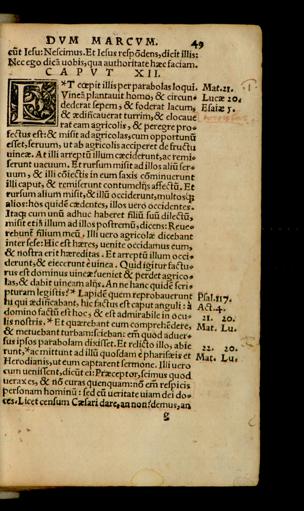 DVM MARCVM. 49
cũt Iesu: Nescimus. Et Iesus respõdens, dicit illis:
Nec ego dicã uobis, qua authoritate hæc faciam.
CAPVT XII.
ET cœpit illis per parabolas loqui. Mat. 21.
Vineã plantauit homo, & circun- Lucæ 20.
dederat sepem, & foderat lacum, Esaiæ 5.
& ædificauerat turrim, & elocaue
rat eam agricolis, & peregre pro-
fectus est: & misit ad agricolas, cum opportunũ
esset, seruum, ut ab agricolis acciperet de fructu
uineæ. At illi arreptũ illum cæciderunt, ac remi-
serunt uacuum. Et rursum misit ad illos aliũ ser-
uum, & illi cõiectis in eum saxis cõminuerunt
illi caput, & remiserunt contumelijs affectũ. Et
rursum alium misit, & illũ occiderunt, multosq́;
alios: hos quidẽ cædentes, illos uero occidentes.
Itaq; cum unũ adhuc haberet filiũ suũ dilectũ,
misit etiã illum ad illos postremũ, dicens: Reue-
rebunt filium meũ. Illi uero agricolæ dicebant
inter sese: Hic est hæres, uenite occidamus eum,
& nostra erit hæreditas. Et arreptũ illum occi-
derunt, & eiecerunt è uinea. Quid igitur factu-
rus est dominus uineæ? ueniet & perdet agrico-
las, & dabit uineam alijs. An ne hanc quidẽ scri-
pturam legistis? * Lapidẽ quem reprobauerunt Psal. 117.
hi qui ædificabant, hic factus est caput anguli: à Act. 4.
domino factũ est hoc, & est admirabile in ocu- 21. 20.
lis nostris. * Et quærebant eum comprehẽdere, Mat. Lu.
& metuebant turbam: sciebant em̃ quòd aduer-
sus ipsos parabolam dixisset. Et relicto illo, abie 22. 20.
runt, * ac mittunt ad illũ quosdam è pharisæis et Mat. Lu.
Herodianis, ut eum captarent sermone. Illi uero
cum uenissent, dicũt ei: Præceptor, scimus quod
uerax es, & nõ curas quenquam: nõ em̃ respicis
personam hominũ: sed cũ ueritate uiam dei do-
ces. Licet censum Cæsari dare, an non? demus, an
g